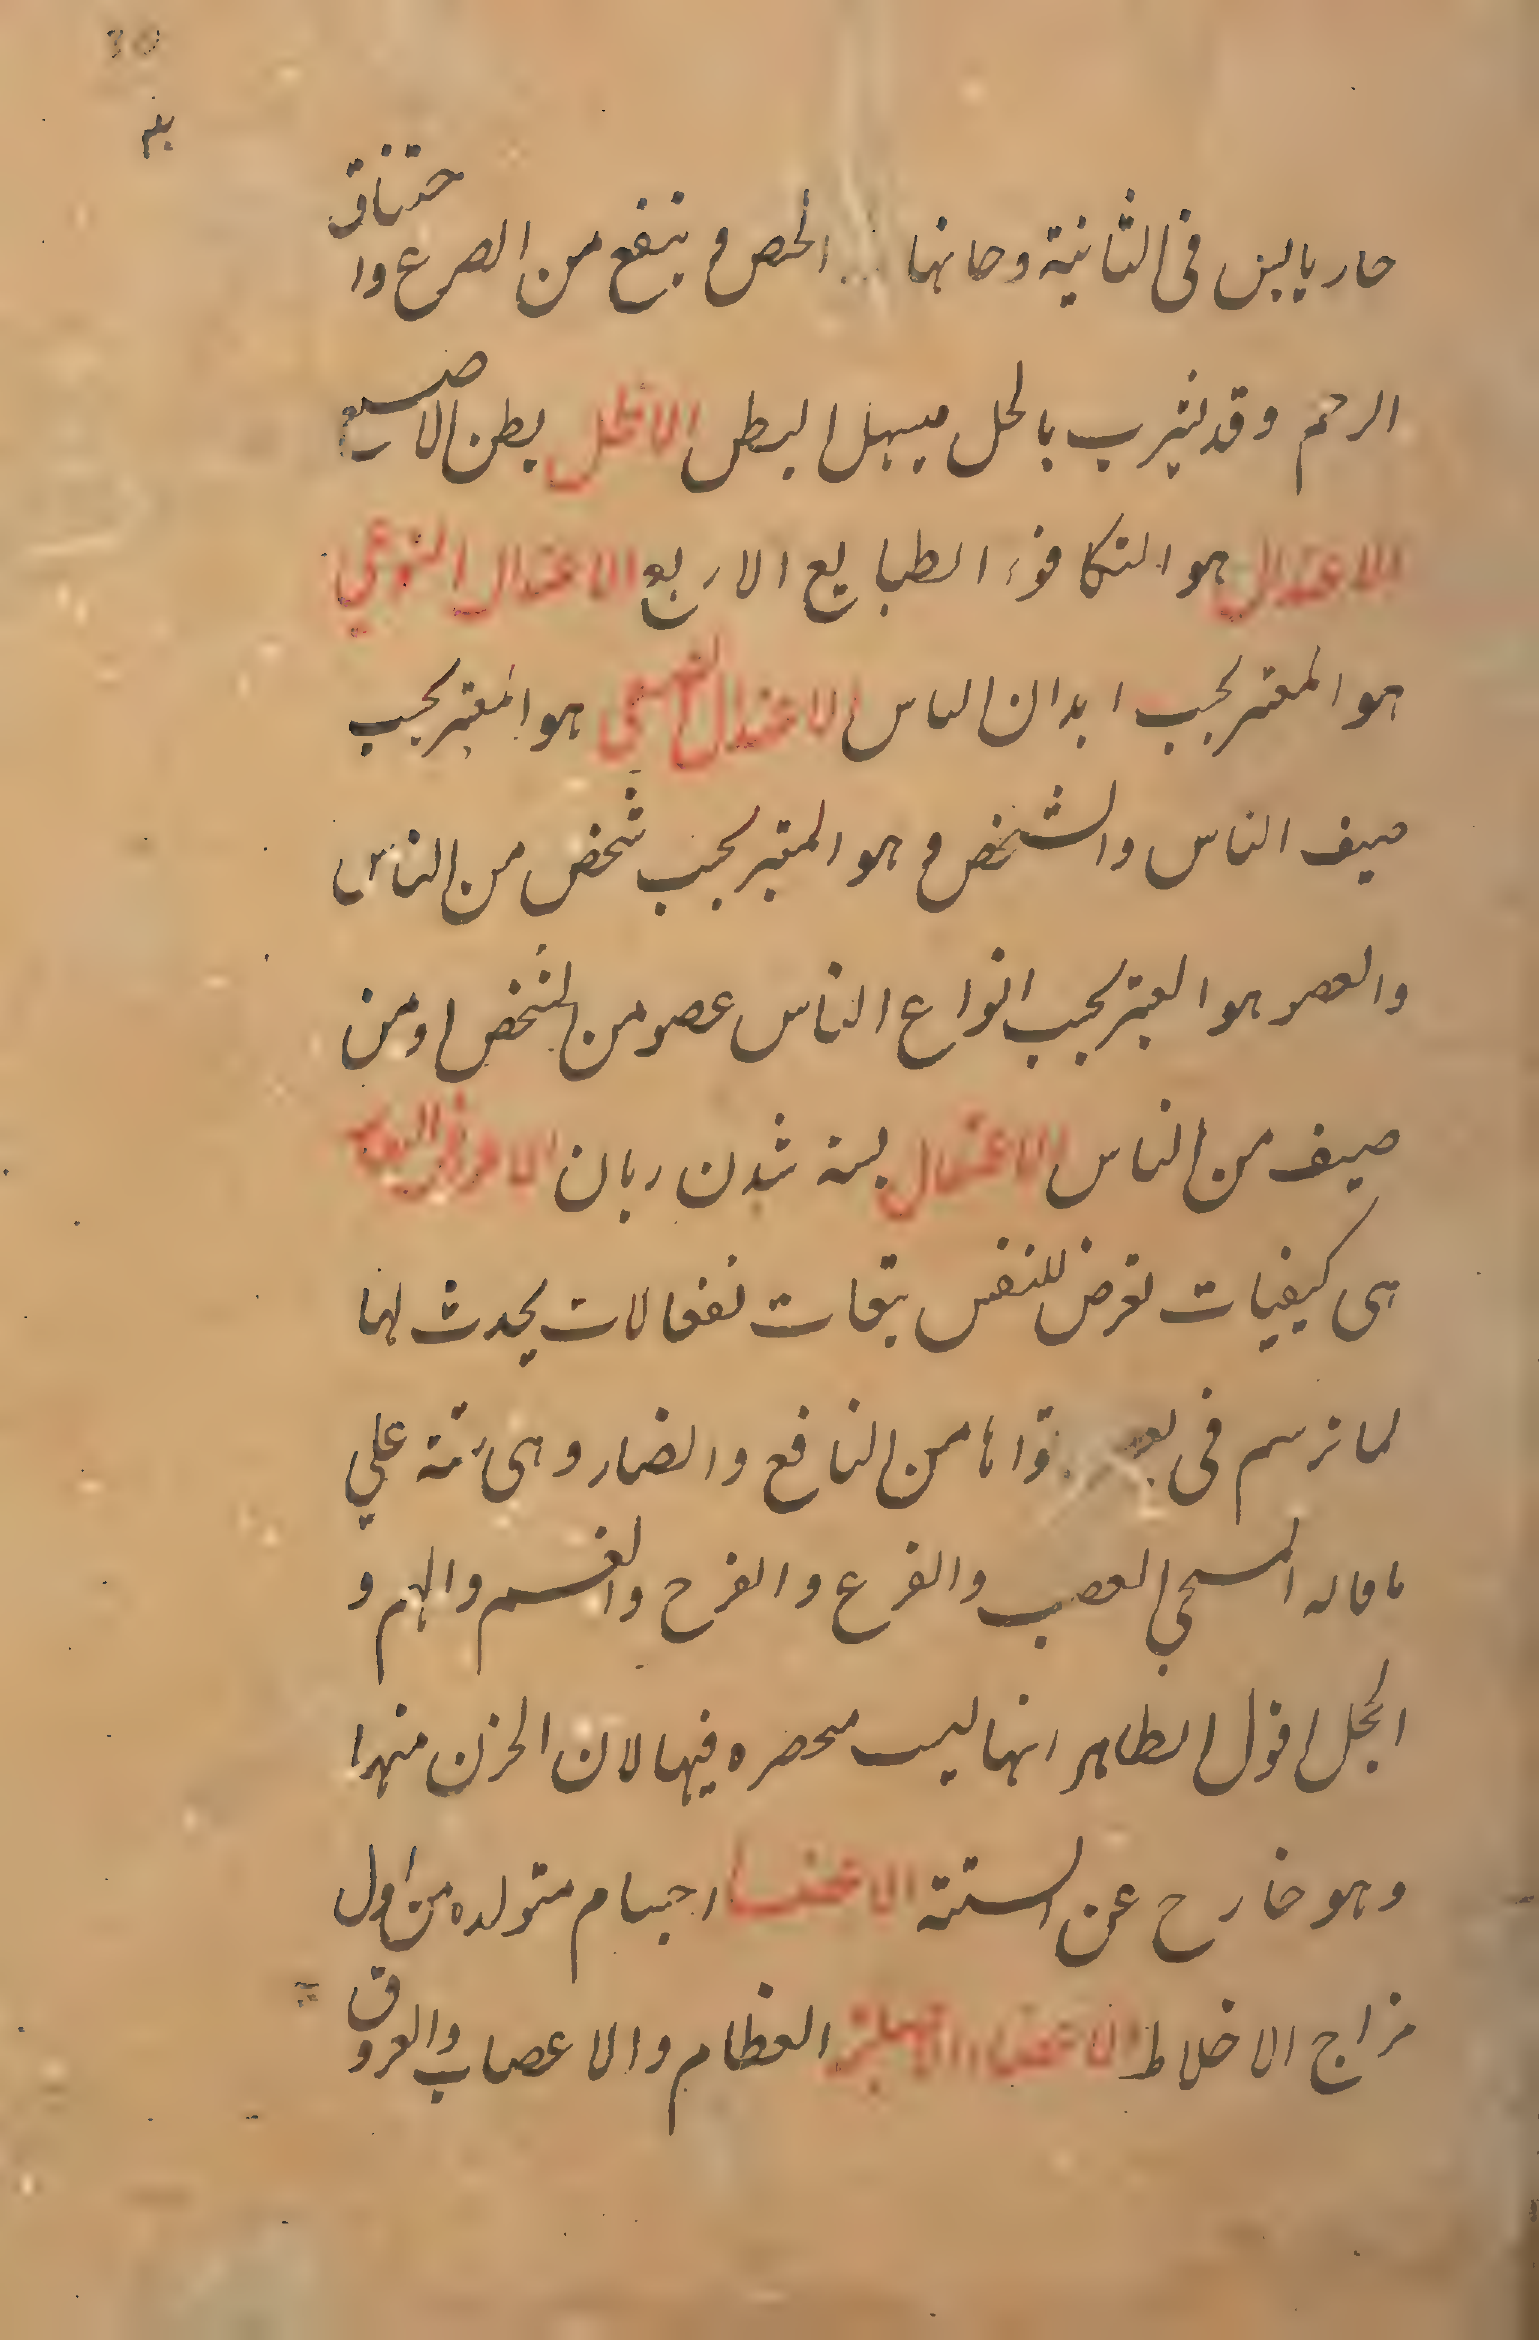 30
حار يابس فى الثانية وحانها الحص و ينفع من الصرع وا ختناق
الرحم وقد يشرب بالخل ميسهل البطن الاخل بطن الاصبع
الاعتدال هو التكافوء الطبايع الاربع الاعتدال النوعي
هو المعتبر بحسب ابدان الناس الاعتدال الصنفي هو المعتبر بحسب
صيف الناس والشخص و هو المعتبر بحسب شخص من الناس
والعصو هو المعتبر بحسب انواع الناس عصو من الشخص او من
صيف من الناس الاعتقال بسته شدن زبان الاعراض النفسا
هى كيفيات تعرض للنفس بتعات نفعالات يحدث لها
لما ترسم فى قواها من النافع والضار وهى ستة علي
ما قاله المسيحي العصب والفزع والفرح والغم والهم و
الخجل اقول الظاهر انها ليست محصره فيها لان الحزن منها
وهو خارج عن الستة الاعضا اجسام متولده من اول
مزاج الاخلاط الاعضاء الاصلية العظام والاعصاب والعروق